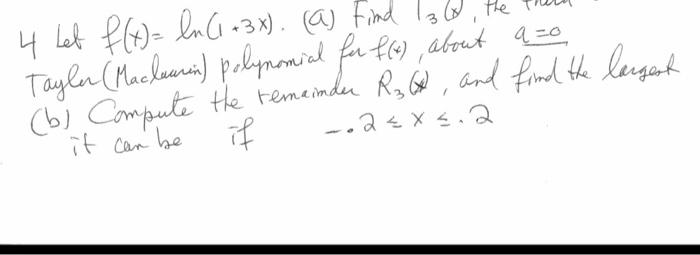 4 Let f(x)= ln(1+3x). (a) Find T3(x), the third
Taylor (Maclaurin) polynomial for f(x), about a=0
(b) Compute the remainder R3(x), and find the largest
it can be if -.2 ≤ x ≤ .2